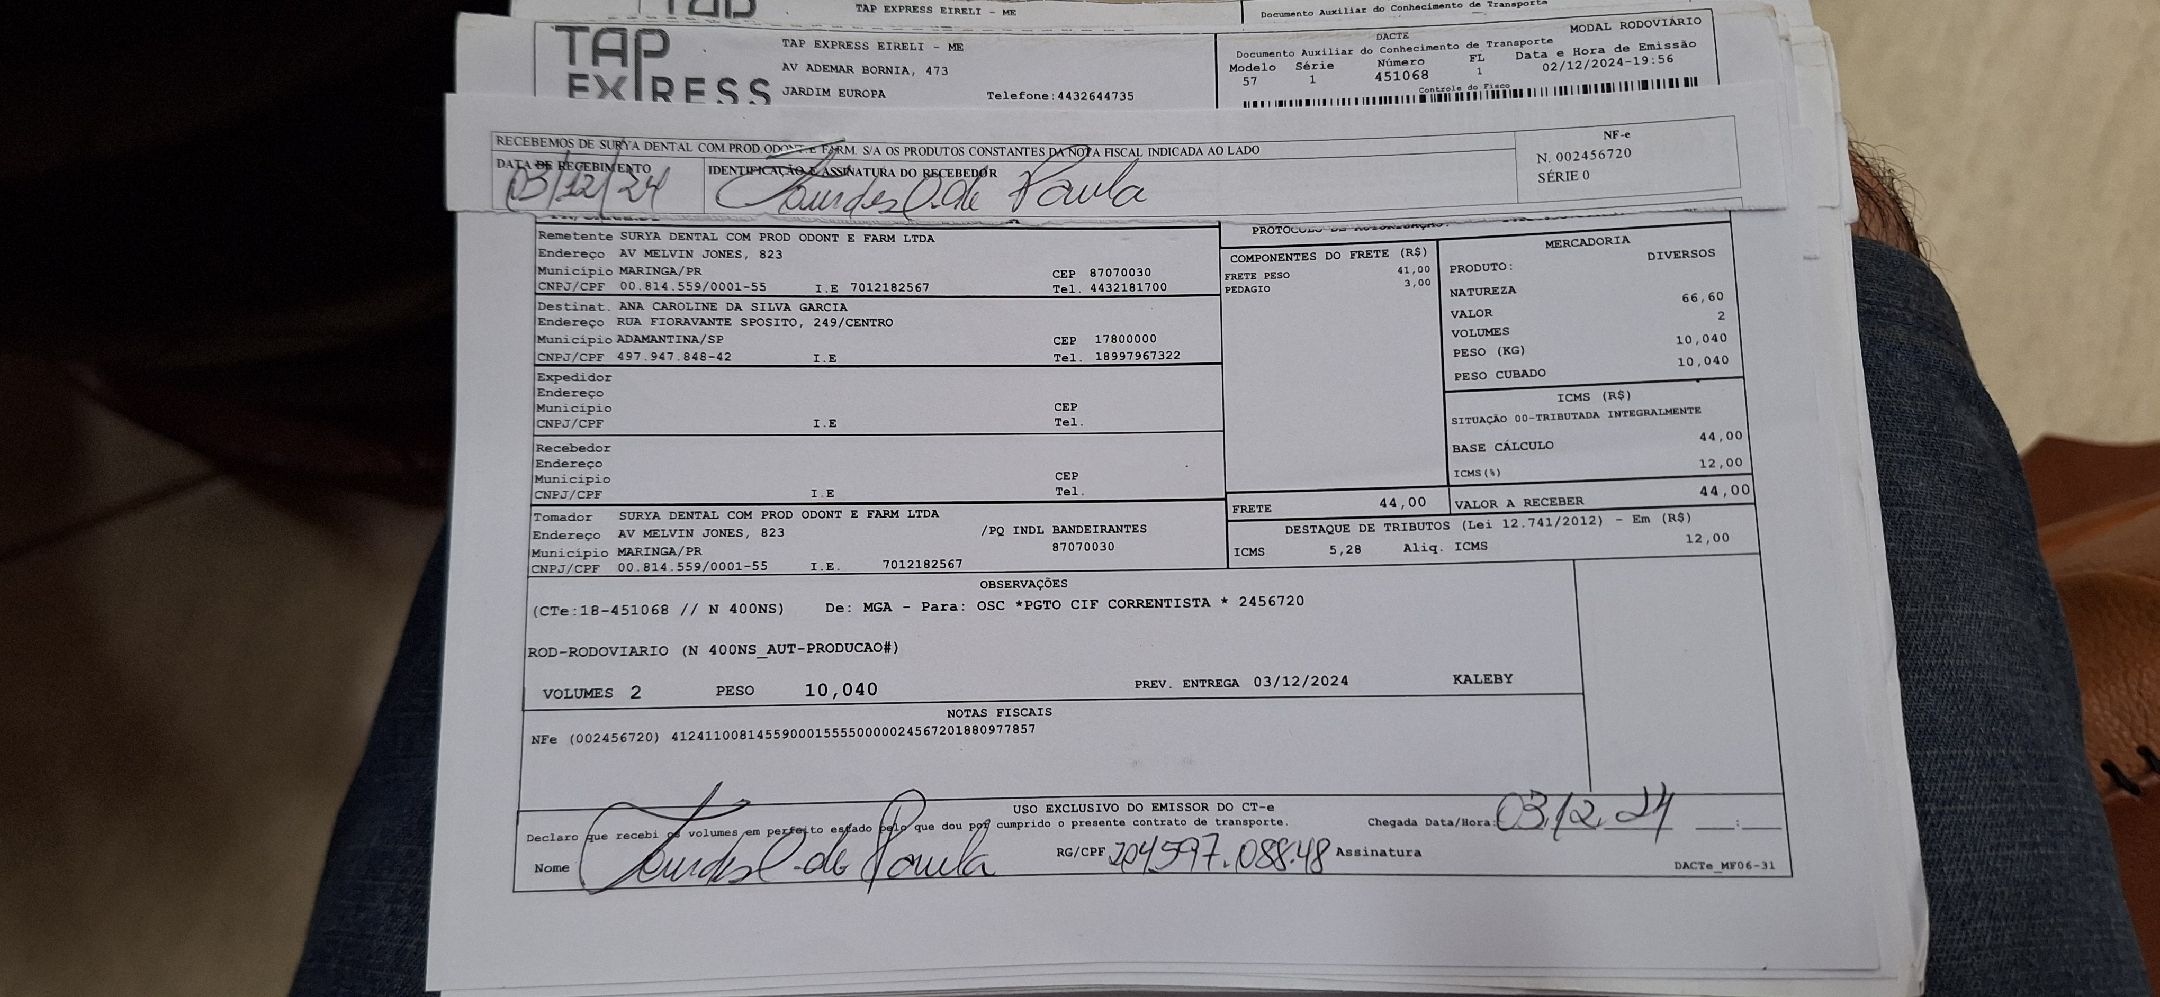 TAP EXPRESS EIRELI - ME
Documento Auxiliar do Conhecimento de Transporte
TAP EXPRESS
TAP EXPRESS EIRELI - ME
AV ADEMAR BORNIA, 473
JARDIM EUROPA Telefone:4432644735
DACTE MODAL RODOVIÁRIO
Documento Auxiliar do Conhecimento de Transporte
Modelo Série Número FL Data e Hora de Emissão
57 1 451068 1 02/12/2024-19:56
Controle do Fisco
RECEBEMOS DE SURYA DENTAL COM PROD ODONT E FARM. S/A OS PRODUTOS CONSTANTES DA NOTA FISCAL INDICADA AO LADO
DATA DE RECEBIMENTO IDENTIFICAÇÃO E ASSINATURA DO RECEBEDOR
03/12/24 Lourdes O. de Paula
NF-e
N. 002456720
SÉRIE 0
Remetente SURYA DENTAL COM PROD ODONT E FARM LTDA
Endereço AV MELVIN JONES, 823
Município MARINGA/PR CEP 87070030
CNPJ/CPF 00.814.559/0001-55 I.E 7012182567 Tel. 4432181700
Destinat. ANA CAROLINE DA SILVA GARCIA
Endereço RUA FIORAVANTE SPOSITO, 249/CENTRO
Município ADAMANTINA/SP CEP 17800000
CNPJ/CPF 497.947.848-42 I.E Tel. 18997967322
Expedidor
Endereço
Município CEP
CNPJ/CPF I.E Tel.
Recebedor
Endereço
Município CEP
CNPJ/CPF I.E Tel.
Tomador SURYA DENTAL COM PROD ODONT E FARM LTDA
Endereço AV MELVIN JONES, 823 /PQ INDL BANDEIRANTES
Município MARINGA/PR 87070030
CNPJ/CPF 00.814.559/0001-55 I.E. 7012182567
PROTOCOLO DE AUTORIZAÇÃO:
COMPONENTES DO FRETE (R$)
FRETE PESO 41,00
PEDAGIO 3,00
MERCADORIA
PRODUTO: DIVERSOS
NATUREZA
VALOR 66,60
VOLUMES 2
PESO (KG) 10,040
PESO CUBADO 10,040
ICMS (R$)
SITUAÇÃO 00-TRIBUTADA INTEGRALMENTE
BASE CÁLCULO 44,00
ICMS(%) 12,00
FRETE 44,00 VALOR A RECEBER 44,00
DESTAQUE DE TRIBUTOS (Lei 12.741/2012) - Em (R$)
ICMS 5,28 Aliq. ICMS 12,00
OBSERVAÇÕES
(CTe:18-451068 // N 400NS) De: MGA - Para: OSC *PGTO CIF CORRENTISTA * 2456720
ROD-RODOVIARIO (N 400NS_AUT-PRODUCAO#)
VOLUMES 2 PESO 10,040 PREV. ENTREGA 03/12/2024 KALEBY
NOTAS FISCAIS
NFe (002456720) 41241100814559000155550000024567201880977857
USO EXCLUSIVO DO EMISSOR DO CT-e
Declaro que recebi os volumes em perfeito estado pelo que dou por cumprido o presente contrato de transporte. Chegada Data/Hora: 03.12.24 __:__
Nome Lourdes O. de Paula RG/CPF 204597.088.48 Assinatura
DACTe_MF06-31